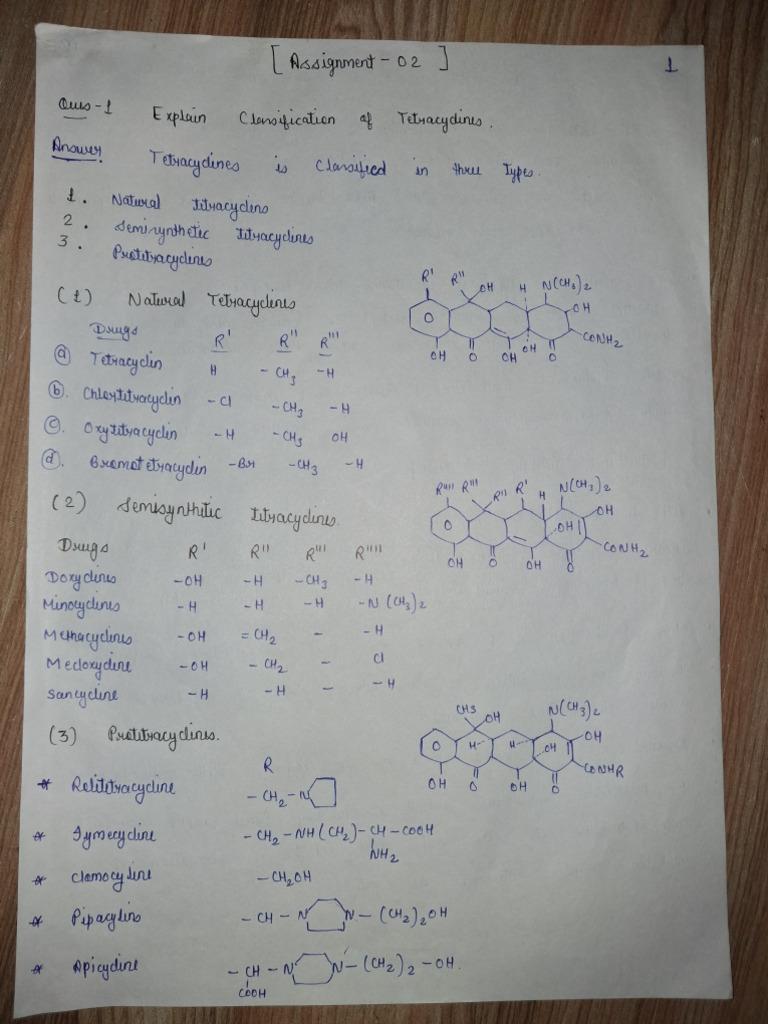 [ Assignment - 02 ]
1
Ques-1 Explain Classification of Tetracyclines.
Answer Tetracyclines is Classified in three Types.
1. Natural titracyclens
2. Semisynthetic titracyclines
3. Protitracyclines
(1) Natural Tetracyclines
Drugs R' R'' R'''
(a) Tetracyclin H -CH3 -H
(b). Chlortitracyclin -Cl -CH3 -H
(c). Oxytitracyclin -H -CH3 OH
(d). Bromotetracyclin -Br -CH3 -H
R' R'' OH H N(CH3)2
O OH
CONH2
OH O OH OH O
(2) Semisynthitic titracyclines.
Drugs R' R'' R''' R''''
Doxyclines -OH -H -CH3 -H
Minocyclines -H -H -H -N(CH3)2
Methacyclines -OH =CH2 - -H
Mecloxycline -OH -CH2 - Cl
Sancycline -H -H - -H
R'''' R''' R'' R' H N(CH3)2
O OH OH
CONH2
OH O OH O
(3) Protitracyclines.
R
* Relitetracycline -CH2-N
* Tymecycline -CH2-NH(CH2)-CH-COOH
NH2
* Clomocycline -CH2OH
* Pipacylins -CH-N N-(CH2)2OH
* Apicycline -CH-N N-(CH2)2-OH.
COOH
CH3 OH N(CH3)2
O H H OH OH
CONHR
OH O OH O